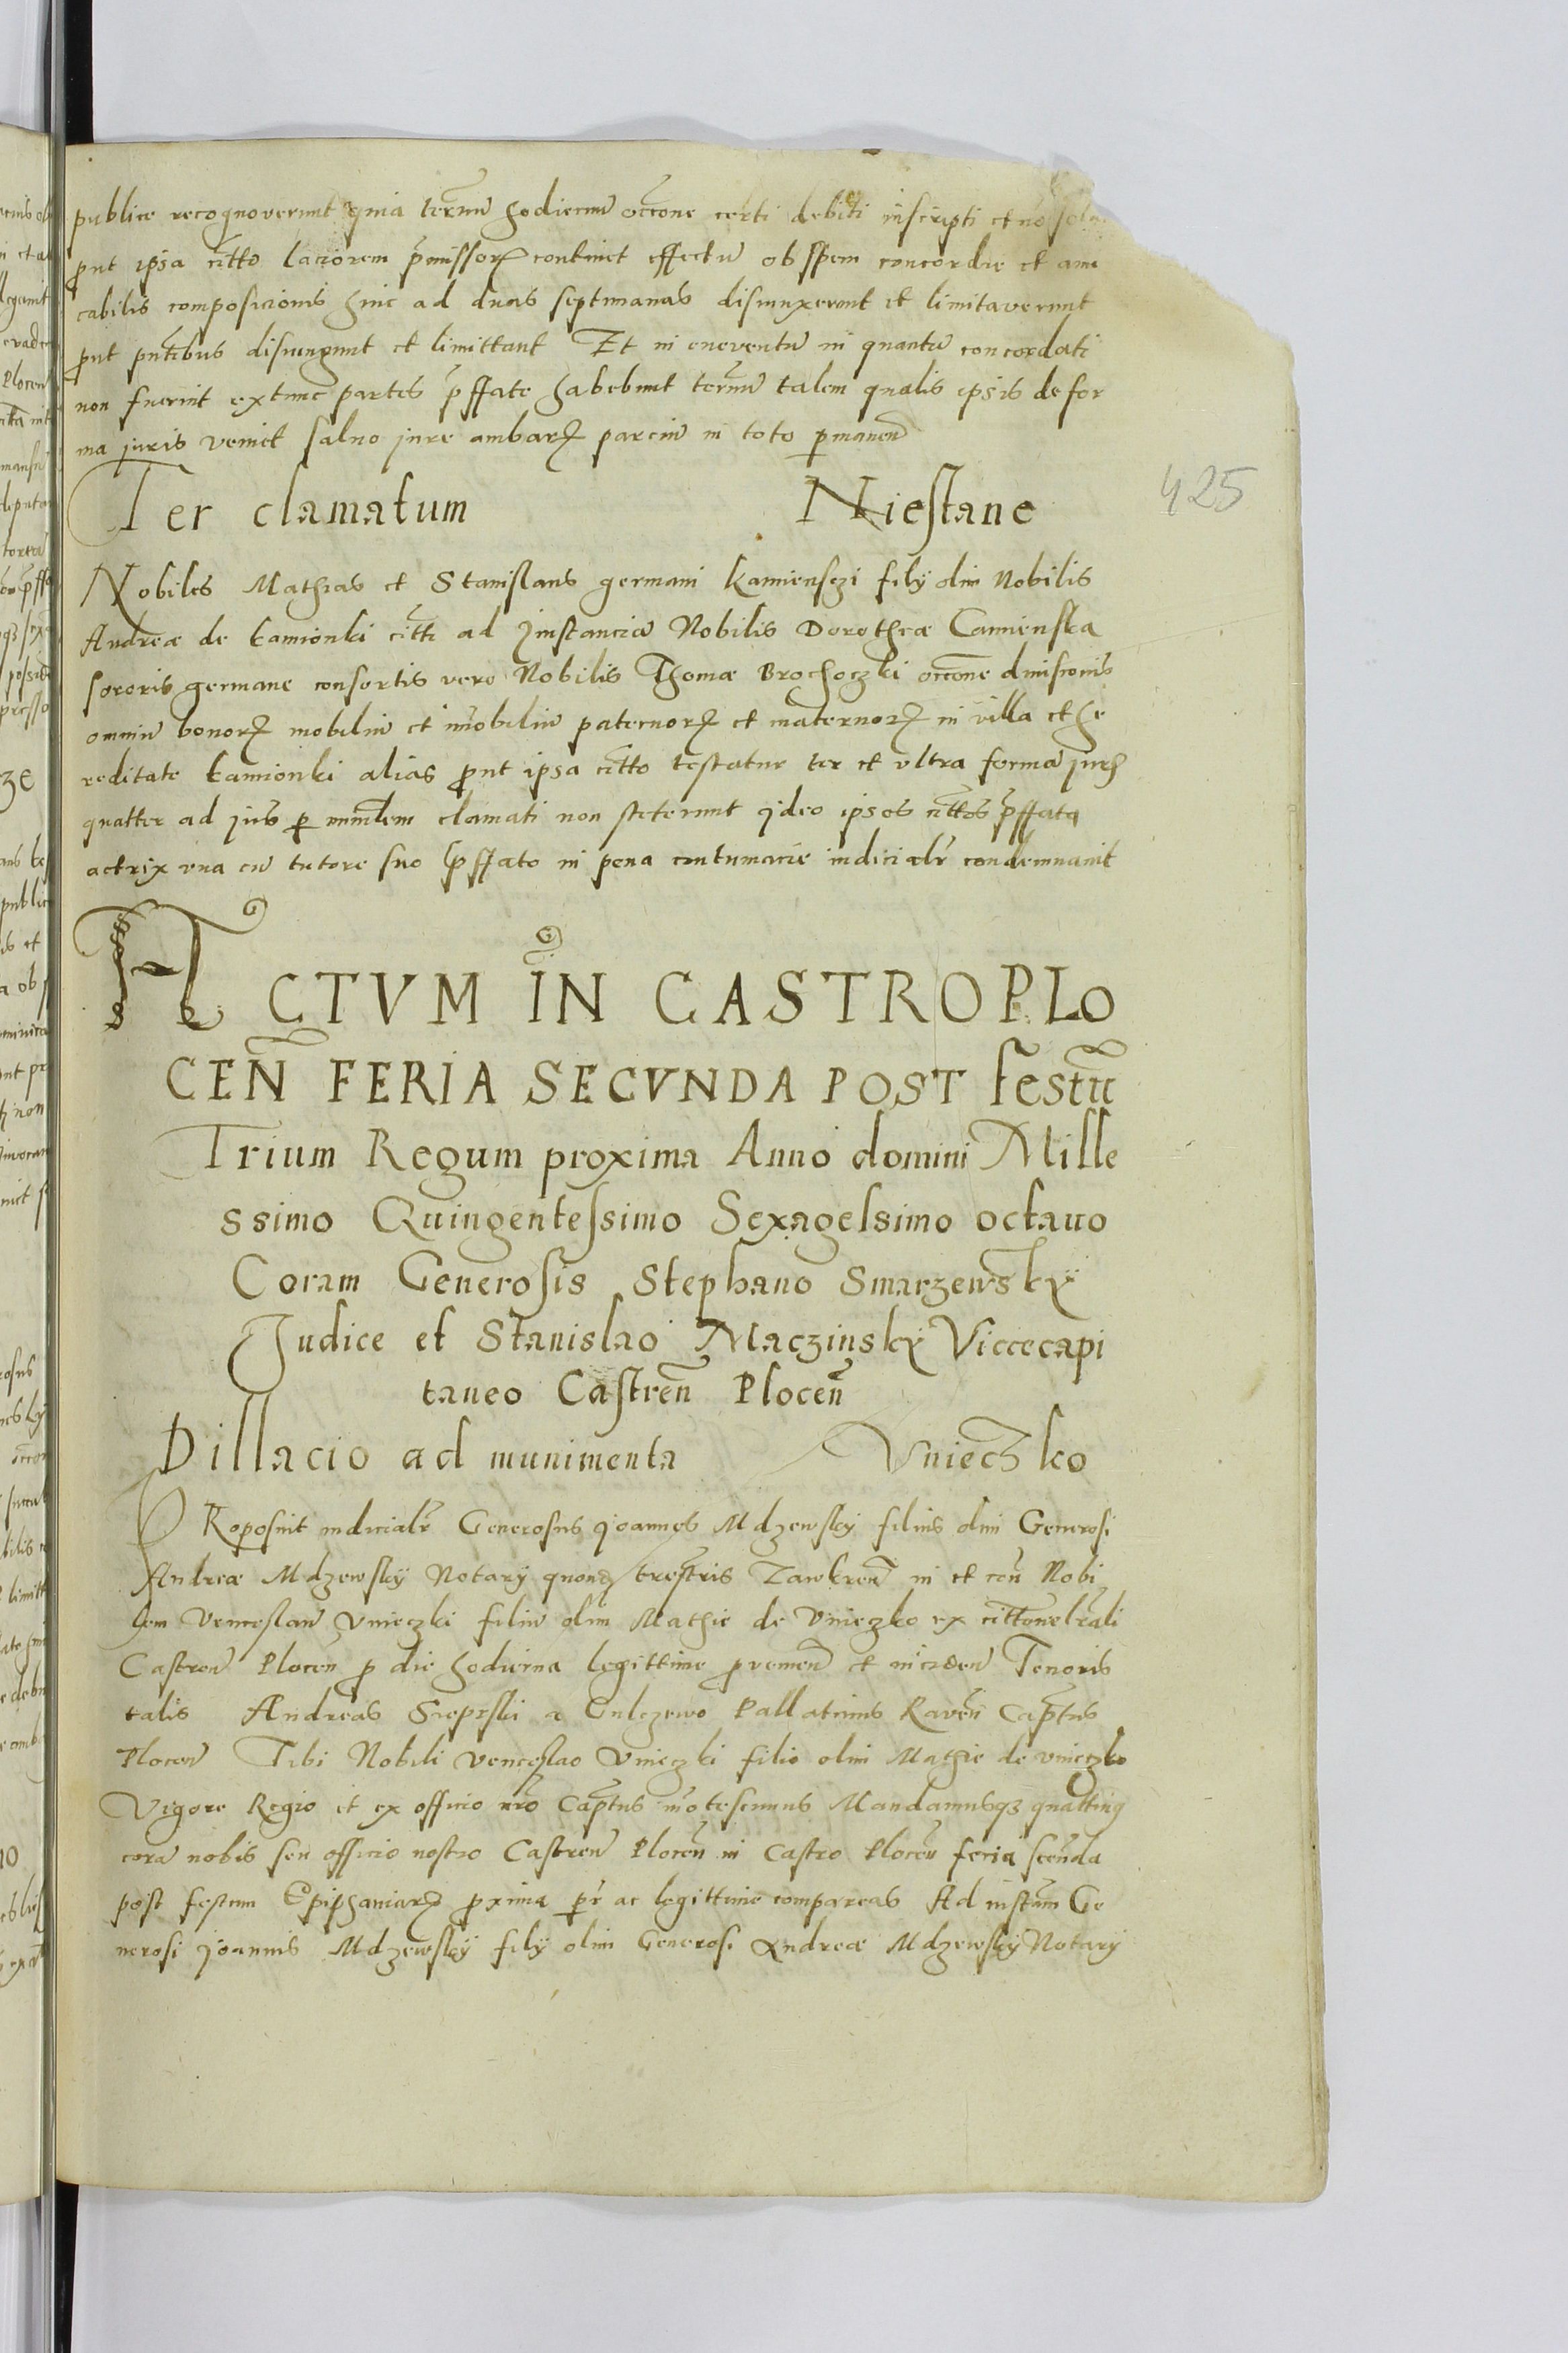 publice recognoverunt quia termũ hodiernũ occõne certi debiti inscripti et nõ
put ipsa citto laciorem p̃missorꝝ continet effectũ ob spem concordie et ami
cabilis composicionis hinc ad duas septimanas disiunxerunt et limitaverunt
put pñtibus disiungunt et limittant Et in eneventũ in quantũ concordati
non fuerint extunc partes p̃ffate habebunt termũ talem qualis ipsis de for
ma juris veniet salvo jure ambarꝝ parciũ in toto pmaneñ
Ter clamatum Niestane
425
Nobiles Mathias et Stanislaus germani Kamienszi filÿ olim Nobilis
Andreæ de Kamionki citti ad Jnstanciã Nobilis Dorotheæ Camienska
sororis germane consortis vero Nobilis Thomæ Brochoczki occõne divisionis
omniũ bonorꝝ mobiliũ et im̃obiliũ paternorꝝ et maternorꝝ in villa et he
reditate Kamionki alias put ipsa citto testatur ter et ultra formã juris
quatter ad jus p minlem clamati non steterunt ideo ipsos cittos p̃ffata
actrix una cũ tutore suo p̃ffato in pena contumacie indicialr̃ condemnavit
ACTVM IN CASTRO PLO
CEÑ FERIA SECVNDA POST festũ
Trium Regum proxima Anno domini Mille
ssimo Quingentessimo Sexagessimo octauo
Coram Generosis Stephano Smarzewskÿ
Judice et Stanislao Maczinskÿ Viccecapi
taneo Castreñ Ploceñ
Dillacio ad munimenta Vnieczko
PRoposuit iudicialr̃ Generosus Joannes Mdzewskÿ filius olim Generosi
Andreæ Mdzewskÿ Notarÿ quonđ trestris Zawkreñ in et coñ Nobi
lem Venceslaũ Vnieczki filiũ olim Mathie de Vnieczko ex
Castreñ Ploceñ p die hodierna legittime pvenieñ et incideñ Tenoris
talis Andreas Sieprski a Gulczewo Pallatinus Raveñ Capt̃us
Ploceñ Tibi Nobili Venceslao Vnieczki filio olim Mathie de Vnieczko
Vigore Regio et ex officio nr̃o Capt̃us in̊otescimus Mandamusqꝫ quattinꝰ
corã nobis seu officio nostro Castreñ Ploceñ in Castro Ploceñ feria scđnda
post festum Epiphaniarꝝ pxima pr̃ ac legittime compareas Ad instam̃ Ge
nerosi Joannis Mdzewskÿ filÿ olim Generosi Andreæ Mdzewskÿ Notarÿ